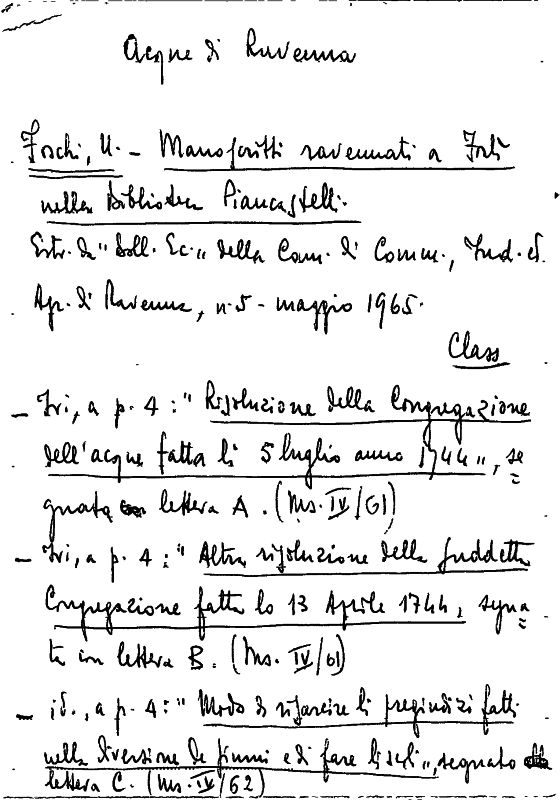 Acque di Ravenna
Foschi, U. - Manoscritti ravennati a Forlì
nella Biblioteca Piancastelli.
Estr. da "Boll. Ec." della Cam. di Comm., Ind. ed.
Agr. di Ravenna, n. 5 - maggio 1965.
Class
- Ivi, a p. 4: "Risoluzione della Congregazione
dell'acque fatta li 5 luglio anno 1744", se
gnata con lettera A. (Ms. IV/61)
- Ivi, a p. 4: "Altra risoluzione della suddetta
Congregazione fatta lo 13 Aprile 1744, segna
ta con lettera B. (Ms. IV/61)
- id., a p. 4: "Modo di risarcire li pregiudizi fatti
nella diversione de fiumi e di fare li scoli", segnato
lettera C. (Ms. IV/62)